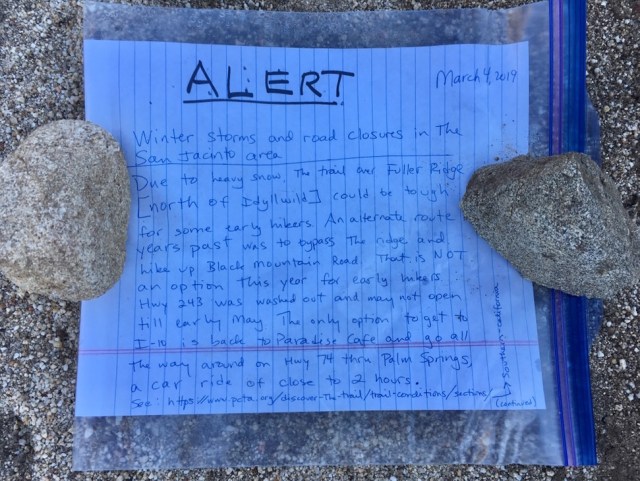 ALERT
March 4, 2019
Winter storms and road closures in The
San Jacinto area
Due to heavy snow, The trail over Fuller Ridge
[north of Idyllwild] could be tough
for some early hikers. An alternate route
years past was to bypass The ridge and
hike up Black Mountain Road. That is NOT
an option this year for early hikers.
Hwy 243 was washed out and may not open
till early May. The only option to get to
I-10 is back to Paradise Cafe and go all
The way around on Hwy 74 thru Palm Springs,
a car ride of close to 2 hours.
See: https://www.pcta.org/discover-The-trail/trail-conditions/sections/
↳ Southern-california
(continued)